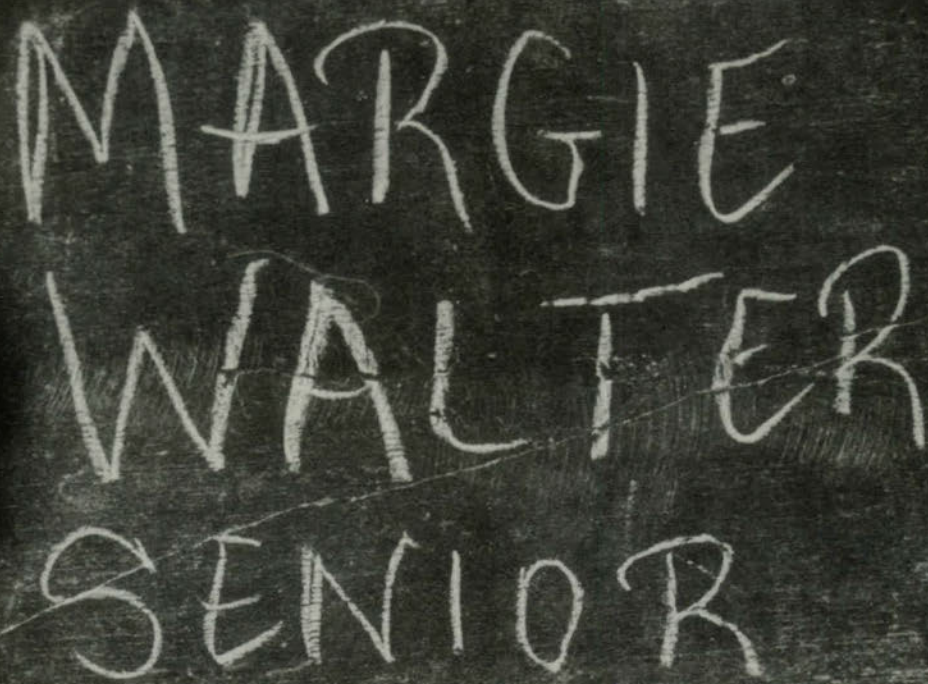 MARGIE
WALTER
SENIOR